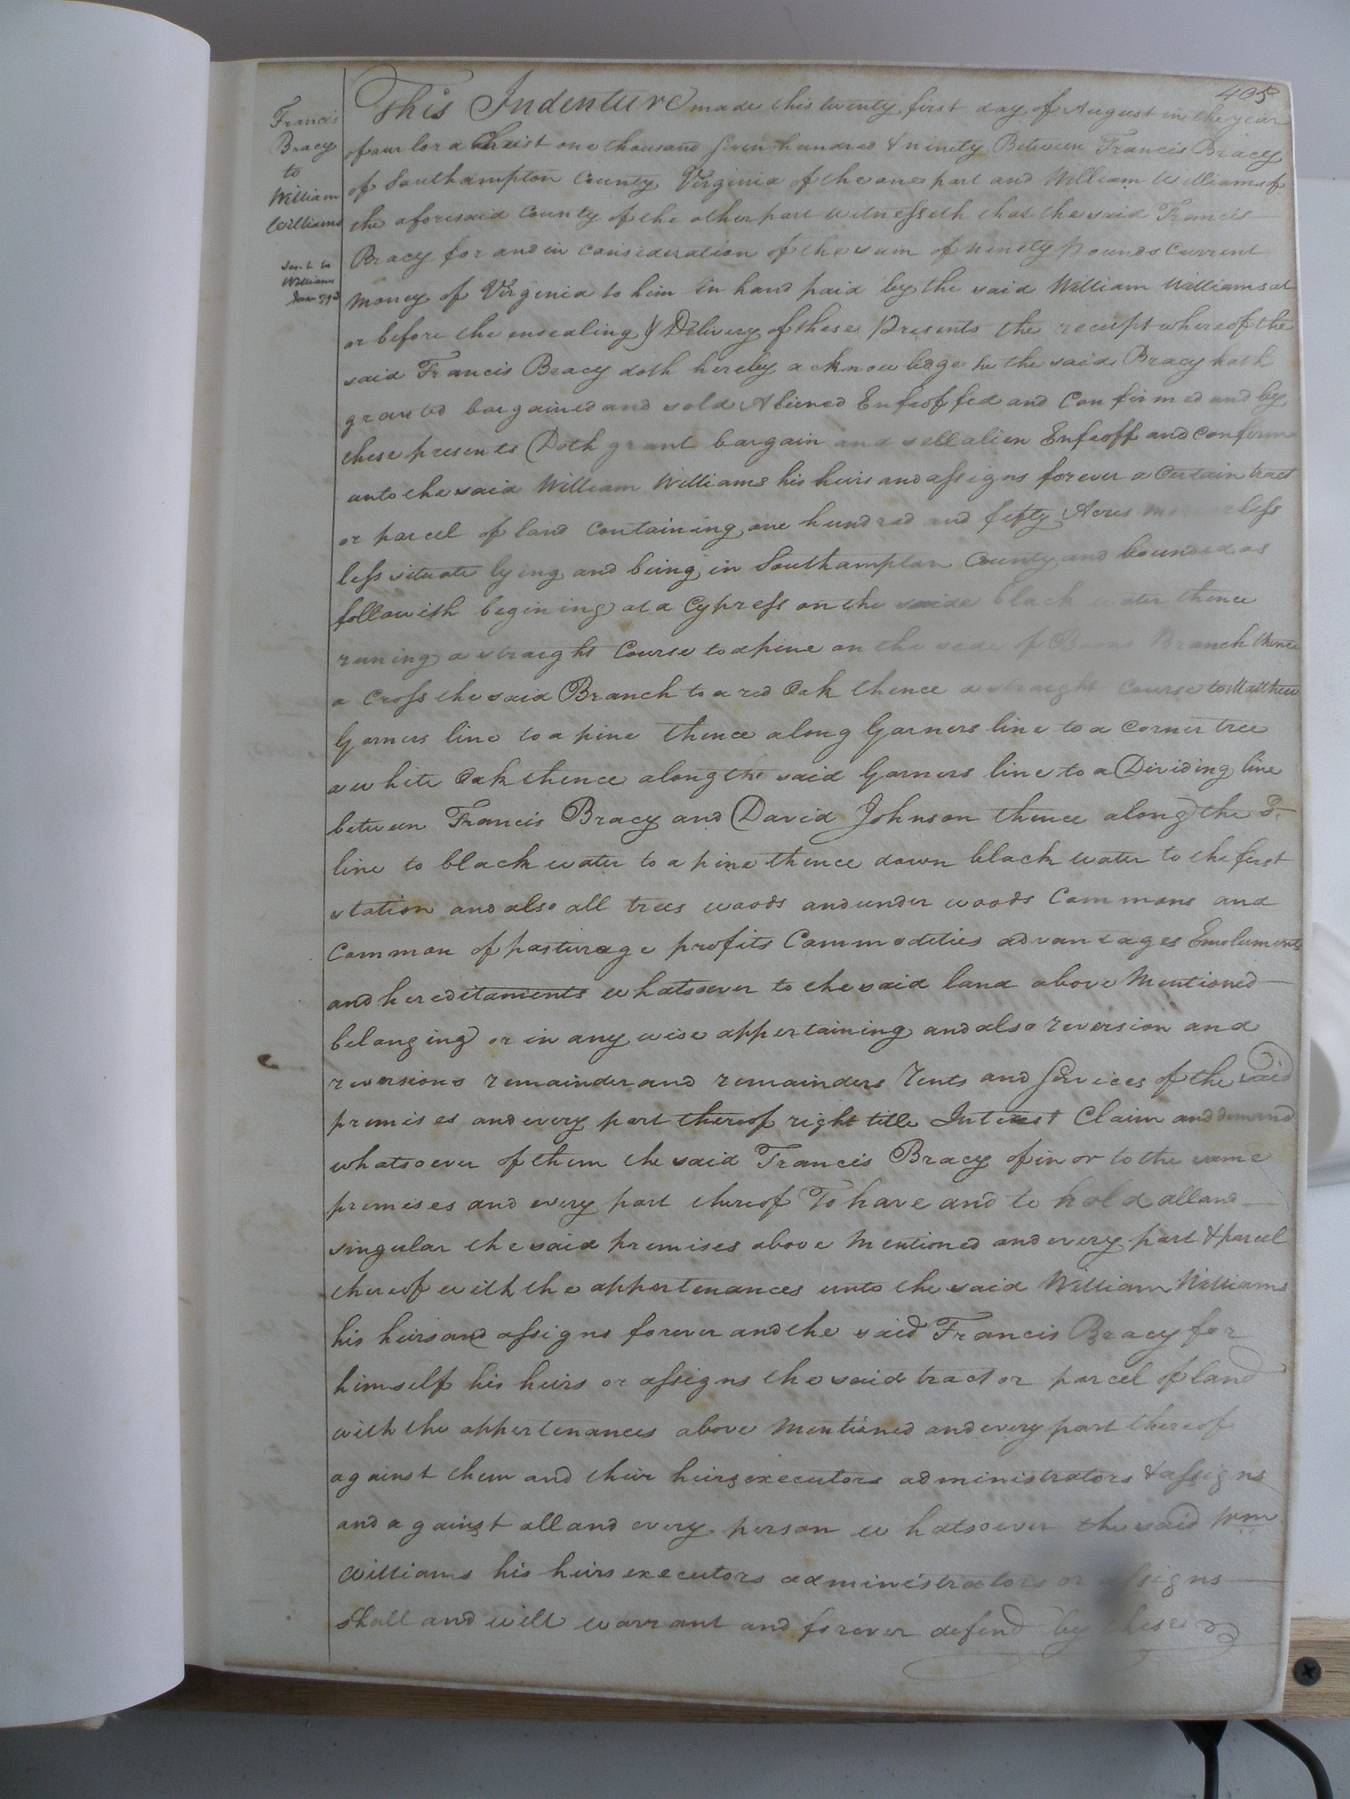 405
Francis
Bracy
to
William
Williams
Sent to
Williams
This Indenture made this twenty first day of August in the year
of our lord Christ one thousand seven hundred & ninety Between Francis Bracy
of Southampton County Virginia of the one part and William Williams of
the aforesaid County of the other part witnesseth that the said Francis
Bracy for and in consideration of the sum of ninety pounds Current
money of Virginia to him in hand paid by the said William Williams at
or before the ensealing & Delivery of these Presents the receipt whereof the
said Francis Bracy doth hereby acknowledge he the said Bracy hath
granted bargained and sold Aliened Enfeoffed and Confirmed and by
these presents Doth grant bargain and sell alien Enfeoff and confirm
unto the said William Williams his heirs and assigns forever a Certain tract
or parcel of land Containing one hundred and fifty Acres more or less
less situate lying and being in Southampton County and bounded as
followith begining at a Cypress on the side black water thence
runing a straight Course to a pine on the side of Branch thence
a Cross the said Branch to a red Oak thence a straight Course to Matthew
Garners line to a pine thence along Garners line to a corner tree
a white Oak thence along the said Garners line to a Dividing line
between Francis Bracy and David Johnson thence along the Sd.
line to black water to a pine thence down black water to the first
station and also all trees woods and under woods Commons and
Common of pasturage profits Commodities advantages Emoluments
and hereditaments whatsoever to the said land above Mentioned
belonging or in any wise appertaining and also reversion and
reversions remainder and remainders rents and services of the said
premises and every part thereof right title Interest Claim and demand
whatsoever of them the said Francis Bracy of in or to the same
premises and every part thereof To have and to hold all and
singular the said premises above Mentioned and every part & parcel
thereof with the appertenances unto the said William Williams
his heirs and assigns forever and the said Francis Bracy for
himself his heirs or assigns the said tract or parcel of land
with the appertenances above Mentioned and every part thereof
against them and their heirs executors administrators & assigns
and against all and every person whatsoever the said Wm.
Williams his heirs executors administrators or assigns
shall and will warrant and forever defend by these